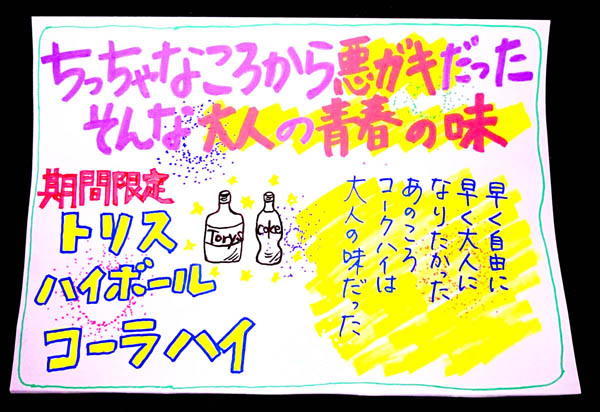 ちっちゃなころから悪ガキだった
そんな大人の青春の味
期間限定
トリス
ハイボール
コーラハイ
Torys
coke
早く自由に
早く大人に
なりたかった
あのころ
コークハイは
大人の味だった